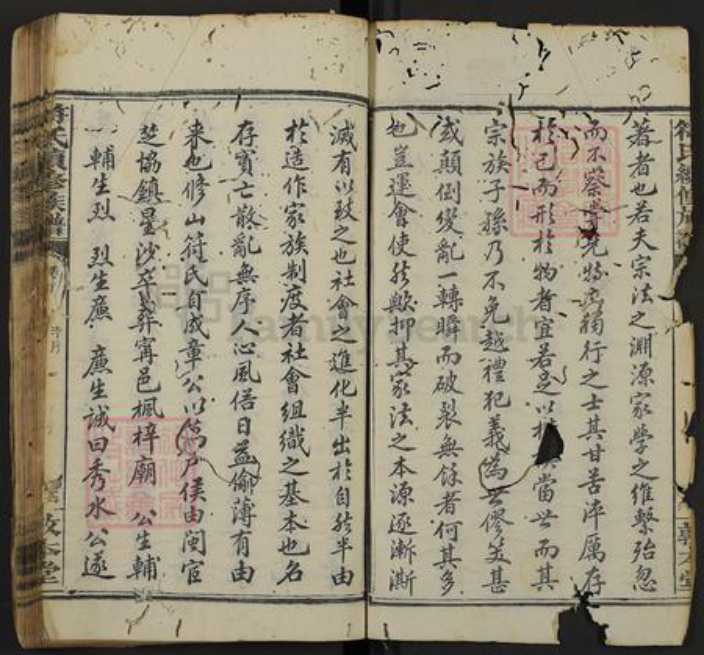 著者也若夫宗法之淵源家學之維繫殆忽
而不察學先特立獨行之士其甘苦淬厲存
於己而形於物者宜若足以 當世而其
宗族子孫乃不免越禮犯義為世僇笑甚
或顛倒變亂一轉瞬而破裂無餘者何其多
也豈運會使然歟抑其家法之本源逐漸澌
滅有以致之也社會之進化半出於自然半由
於造作家族制度者社會組織之基本也名
存實亡散亂無序人心風俗日益偷薄有由
来也修山符氏自成章公以萬戶侯由閩官
楚協鎮星沙卒葬甯邑楓梓廟 公生輔
輔生烈 烈生廉 廉生誠曰秀水公遂
符氏續修族譜
敦本堂